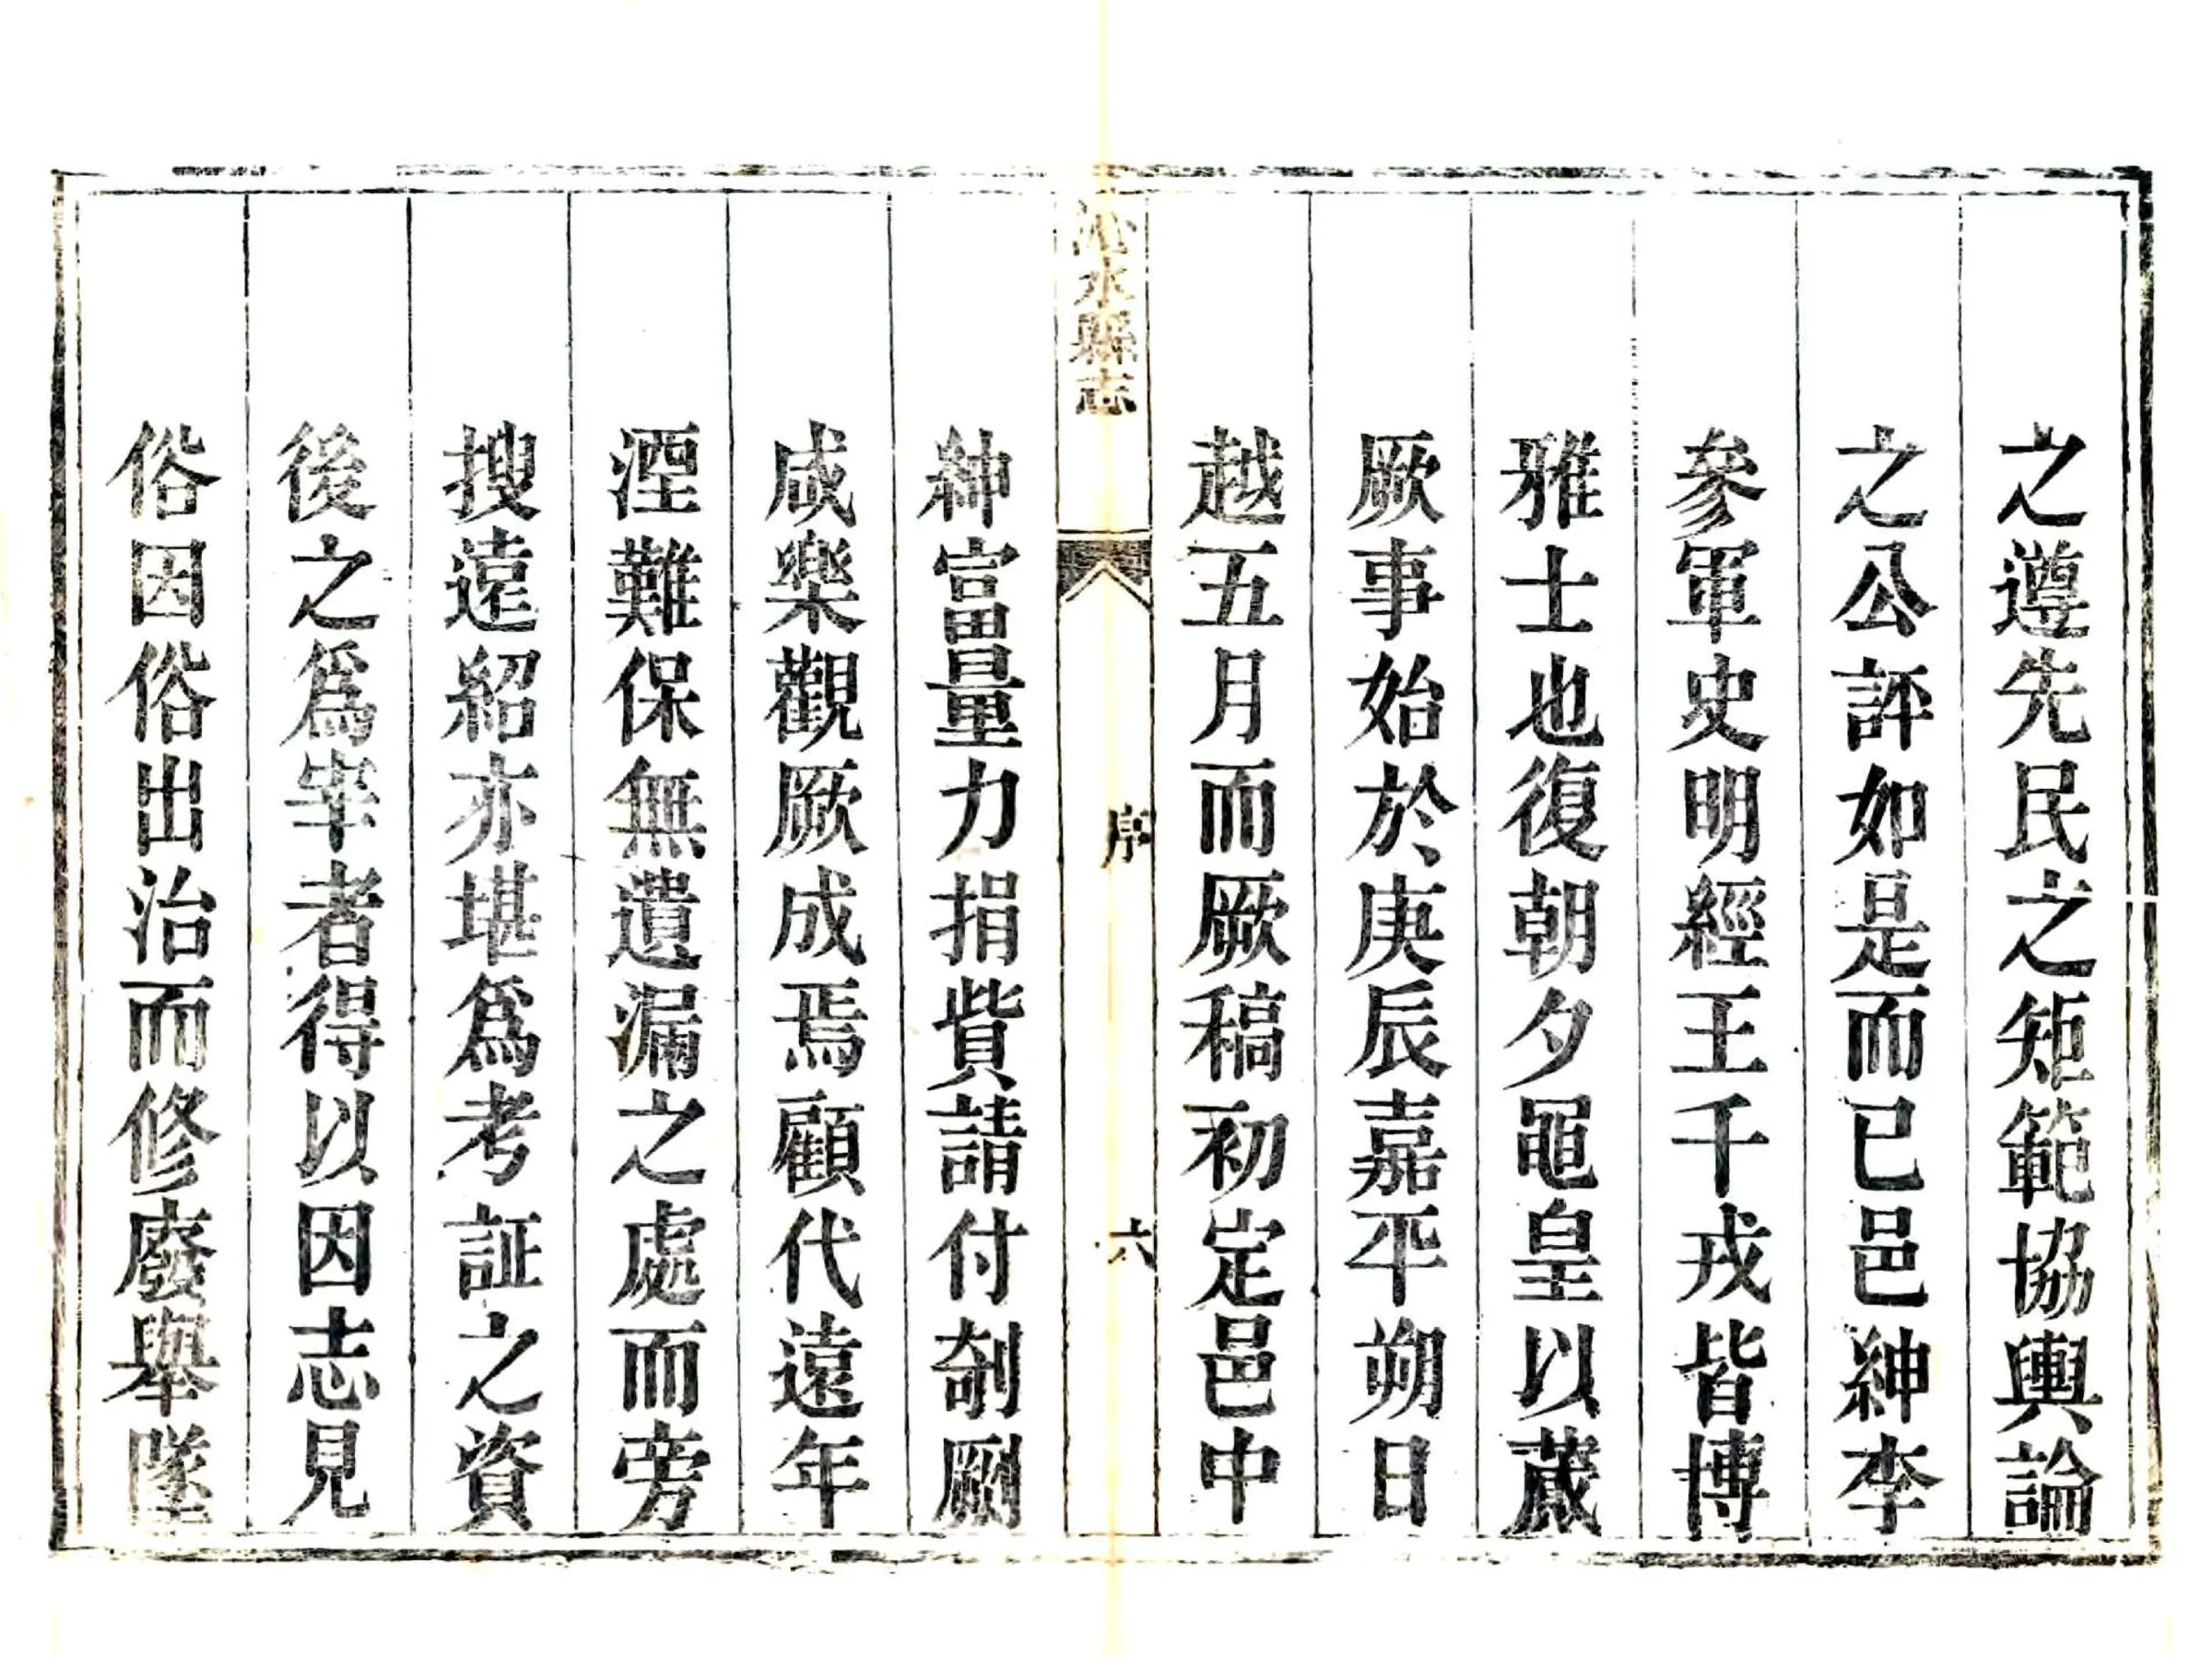 之遵先民之矩範協輿論
之公評如是而已邑紳李
參軍史明經王千戎皆博
雅士也復朝夕黽皇以蕆
厥事始於庚辰嘉平朔日
越五月而厥稿初定邑中
沁水縣志
序
六
紳富量力捐貲請付剞劂
咸樂觀厥成焉顧代遠年
湮難保無遺漏之處而旁
搜遠紹亦堪爲考証之資
後之爲宰者得以因志見
俗因俗出治而修廢舉墜